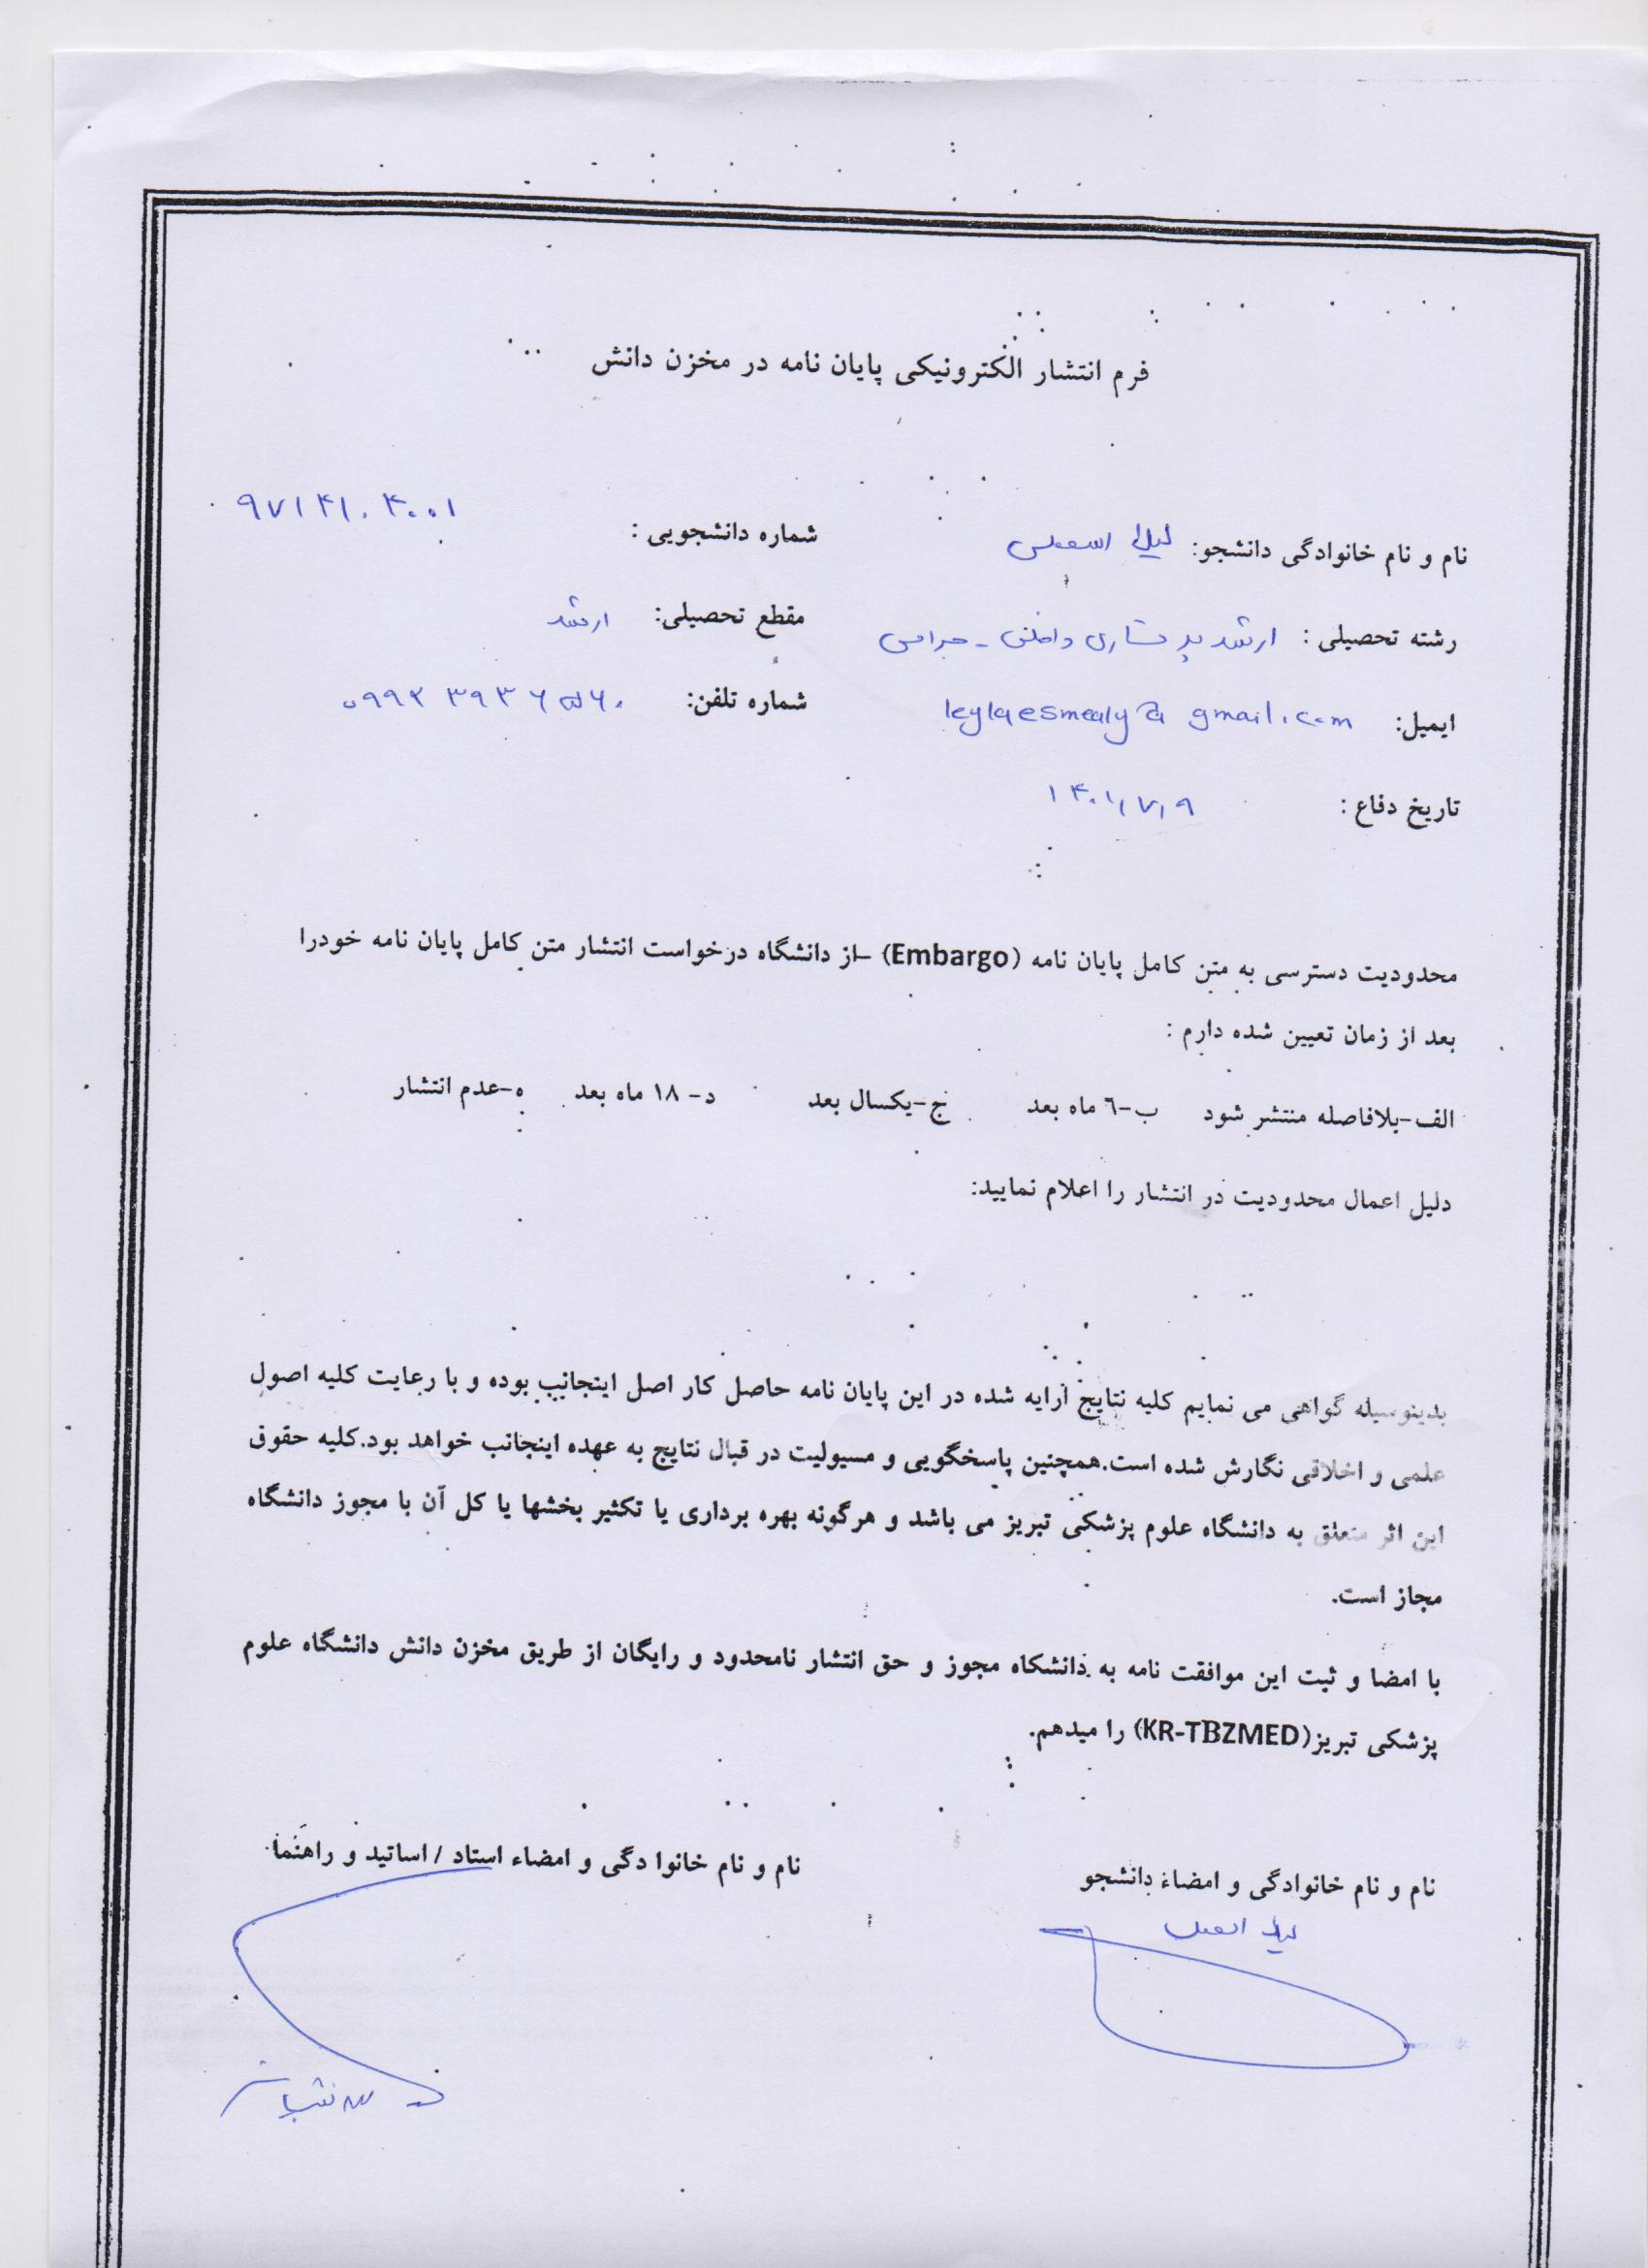 فرم انتشار الکترونیکی پایان نامه در مخزن دانش
نام و نام خانوادگی دانشجو: لیلا اسمعلی شماره دانشجویی : ۹۷۱۴۱۰۴۰۰۱
رشته تحصیلی : ارشد پرستاری داخلی - جراحی مقطع تحصیلی: ارشد
ایمیل: leylaesmealy@gmail.com شماره تلفن: ۰۹۹۲۳۹۳۶۵۶۰
تاریخ دفاع : ۱۴۰۱/۷/۹
محدودیت دسترسی به متن کامل پایان نامه (Embargo) –از دانشگاه درخواست انتشار متن کامل پایان نامه خودرا
بعد از زمان تعیین شده دارم :
الف-بلافاصله منتشر شود ب-٦ ماه بعد ج-یکسال بعد د- ۱۸ ماه بعد ه-عدم انتشار
دلیل اعمال محدودیت در انتشار را اعلام نمایید:
بدینوسیله گواهی می نمایم کلیه نتایج ارایه شده در این پایان نامه حاصل کار اصل اینجانب بوده و با رعایت کلیه اصول
علمی و اخلاقی نگارش شده است.همچنین پاسخگویی و مسیولیت در قبال نتایج به عهده اینجانب خواهد بود.کلیه حقوق
این اثر متعلق به دانشگاه علوم پزشکی تبریز می باشد و هرگونه بهره برداری یا تکثیر بخشها یا کل آن با مجوز دانشگاه
مجاز است.
با امضا و ثبت این موافقت نامه به دانشکاه مجوز و حق انتشار نامحدود و رایگان از طریق مخزن دانش دانشگاه علوم
پزشکی تبریز(KR-TBZMED) را میدهم.
نام و نام خانوادگی و امضاء دانشجو نام و نام خانوا دگی و امضاء استاد / اساتید و راهنما
لیلا اسمعلی